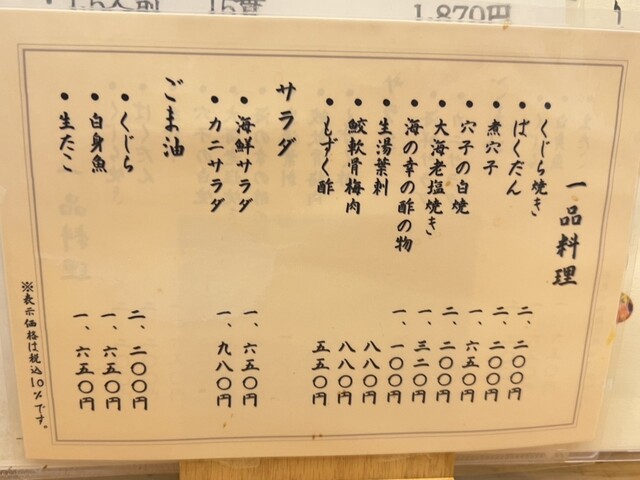 15貫
1,870円
一品料理
・くじら焼き 二、二〇〇円
・ばくだん 二、二〇〇円
・煮穴子 一、六五〇円
・穴子の白焼 二、二〇〇円
・大海老塩焼き 一、三二〇円
・海の幸の酢の物 一、一〇〇円
・生湯葉刺 八八〇円
・鮫軟骨梅肉 八八〇円
・もずく酢 五五〇円
サラダ
・海鮮サラダ 一、六五〇円
・カニサラダ 一、九八〇円
ごま油
・くじら 二、二〇〇円
・白身魚 一、六五〇円
・生たこ 一、六五〇円
※表示価格は税込10%です。